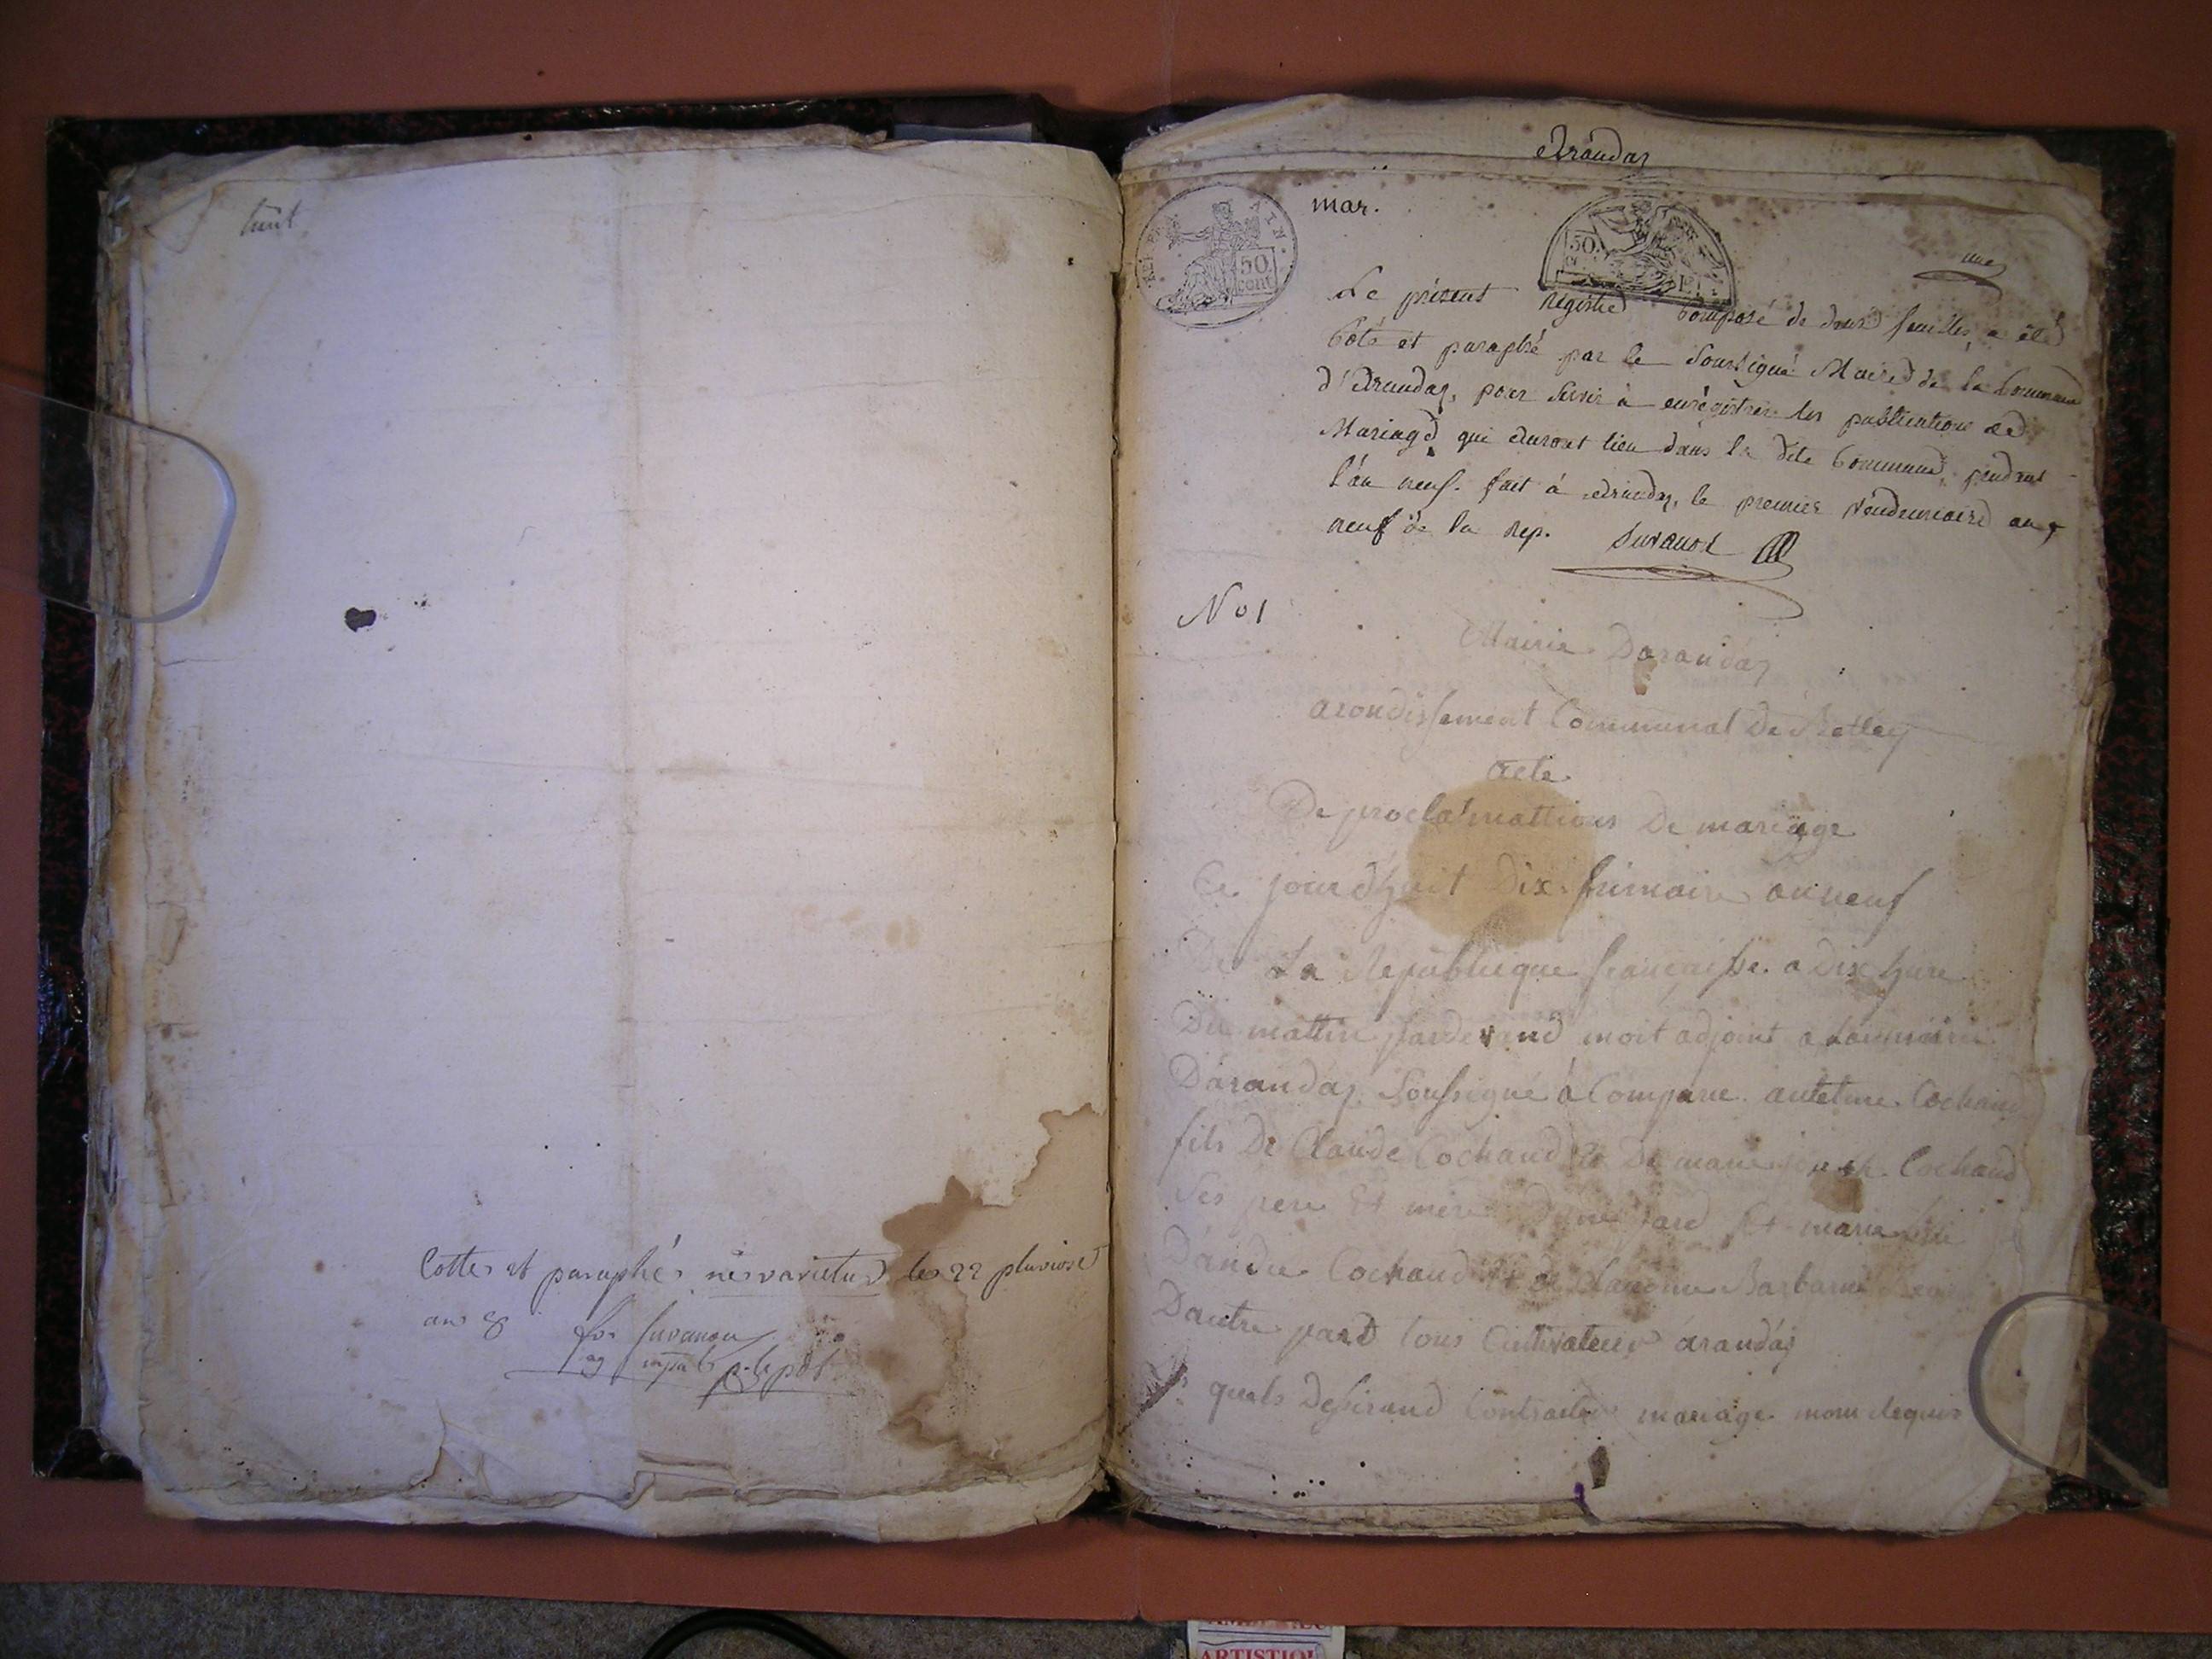 huit
Cottes et paraphés nesvarietur les 22 pluviose
an 8
Arandas
mar.
50 cent
50
une
Le présent régistre Composé de deux feuilles, a été
Côté et paraphé par le Soussigné Maire de la Commune
d'Arandas, pour servir à enrégistrer les publications de
Mariage qui auront lieu dans la dite Commune, pendant
l'an neuf. fait à Arandas, le premier Vendemiaire an
neuf de la rep.
No 1
Mairie Darandas
arondissement Communal De Belley
acte
De proclamattions De mariage
Ce jourdhuit Dix frimaire an neuf
De La Republique francaisse a Dix hure
Du mattin pardevand moit adjoint a La mairie
Darandas Soussigné à Comparue antelme Cochand
fils De Claude Cochand Et De marie Cochand
Ses pere Et mere Dune pard Et marie
Dandre Cochand Et De Claudine Barbarin
Dautre pard tous Cultivateur arandas
quels Desirand Contracter mariage mont requis
ARTISTIQU